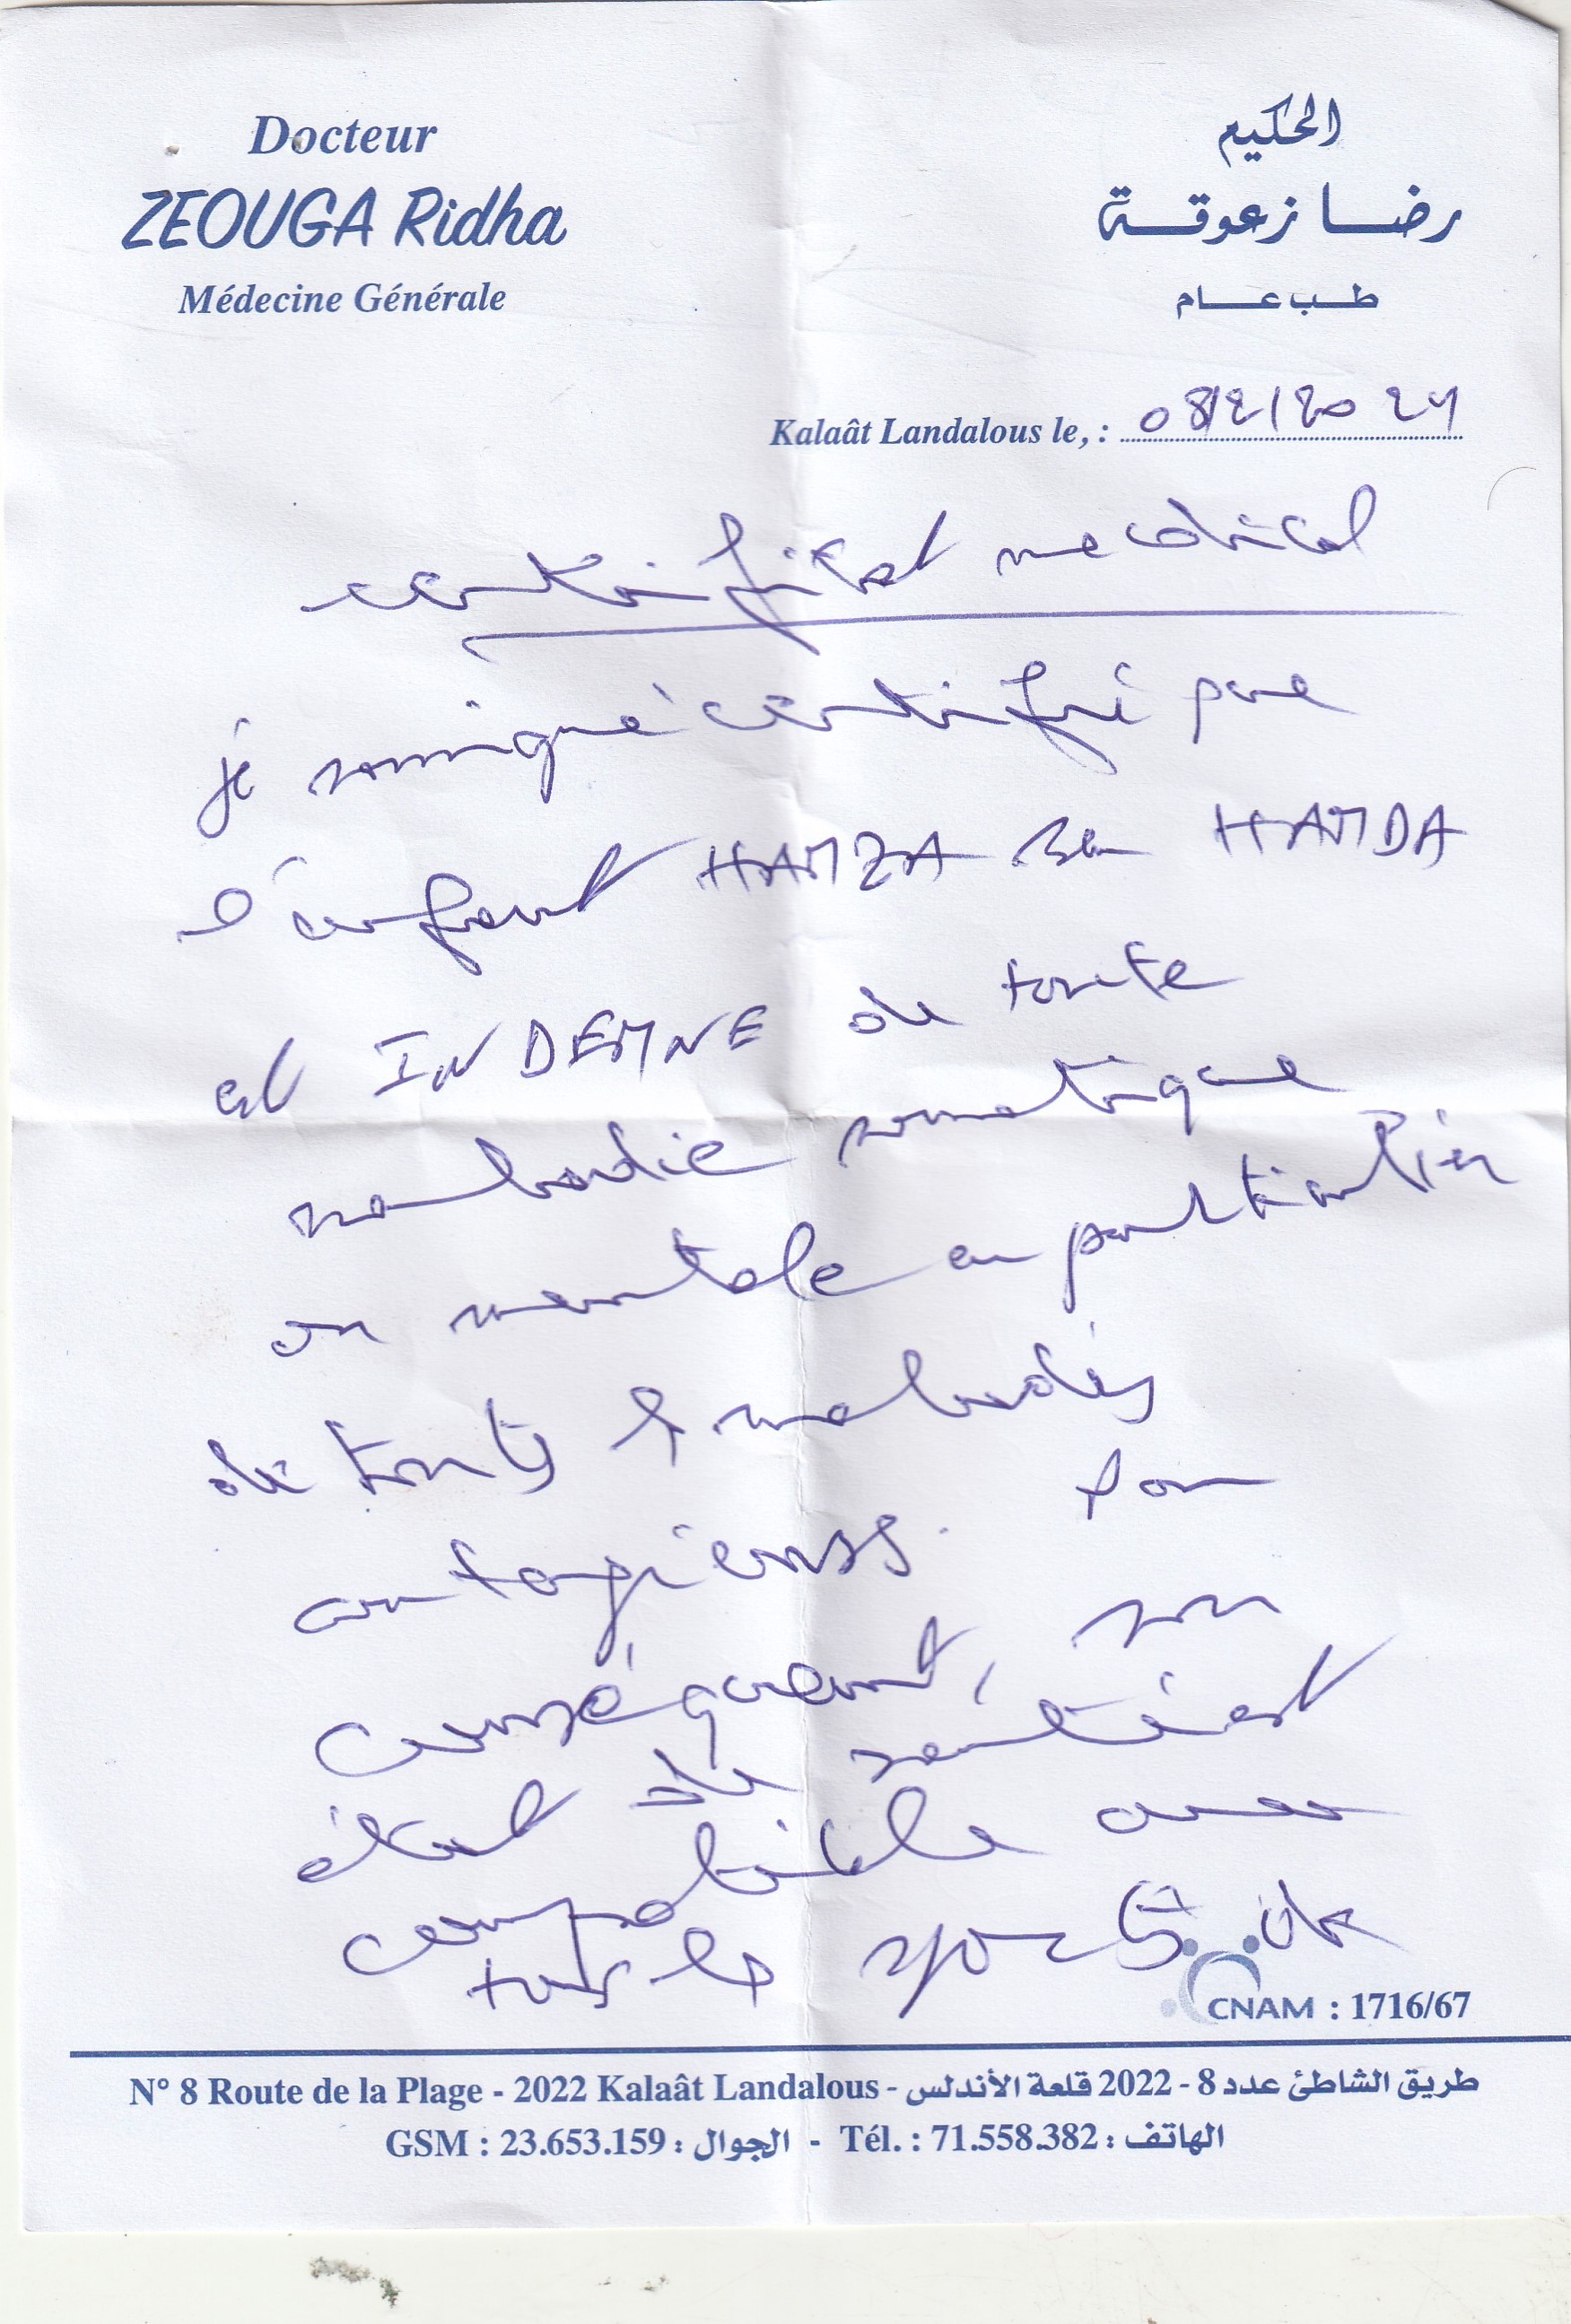 Docteur
ZEOUGA Ridha
Médecine Générale
الحكيم
رضا زعوقة
طب عام
Kalaât Landalous le, : 08/2/2024
certificat medical
je soussigné certifie que
l'enfant HAMZA Ben HAMDA
est INDEMNE de toute
maladie somatique
ou mentale en particulier
de toutes les maladies
contagieuses. Par
conséquent, son
état de santé est
compatible avec
tous les
CNAM : 1716/67
N° 8 Route de la Plage - 2022 Kalaât Landalous - طريق الشاطئ عدد 8 - 2022 قلعة الأندلس
GSM : 23.653.159 : الجوال - Tél. : 71.558.382 : الهاتف